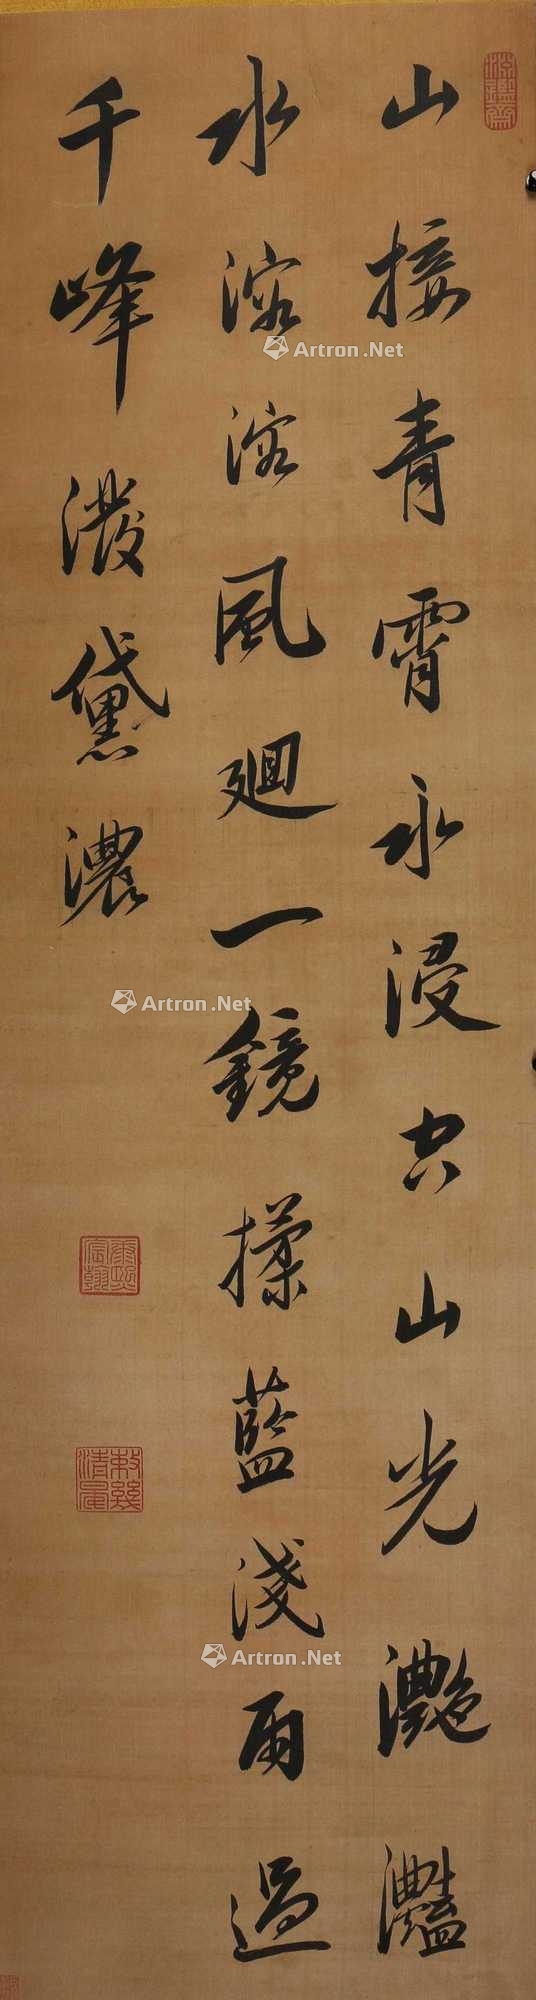 山接青霄水浸空山光灩灧
水溶溶風廻一鏡揉藍淺雨過
千峰潑黛濃
淵鑒齋
康熙宸翰
敕幾清晏
Artron.Net
Artron.Net
Artron.Net